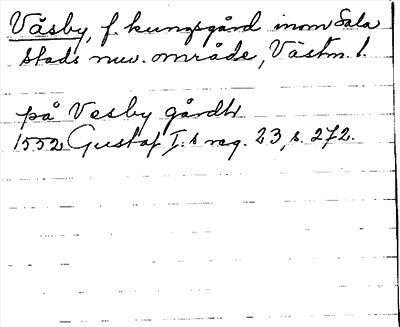 Väsby, f. kungsgård inom Sala
stads nuv. område, Västm. l.
på Vesby gårdh
1552 Gustaf I:s reg. 23, s. 272.